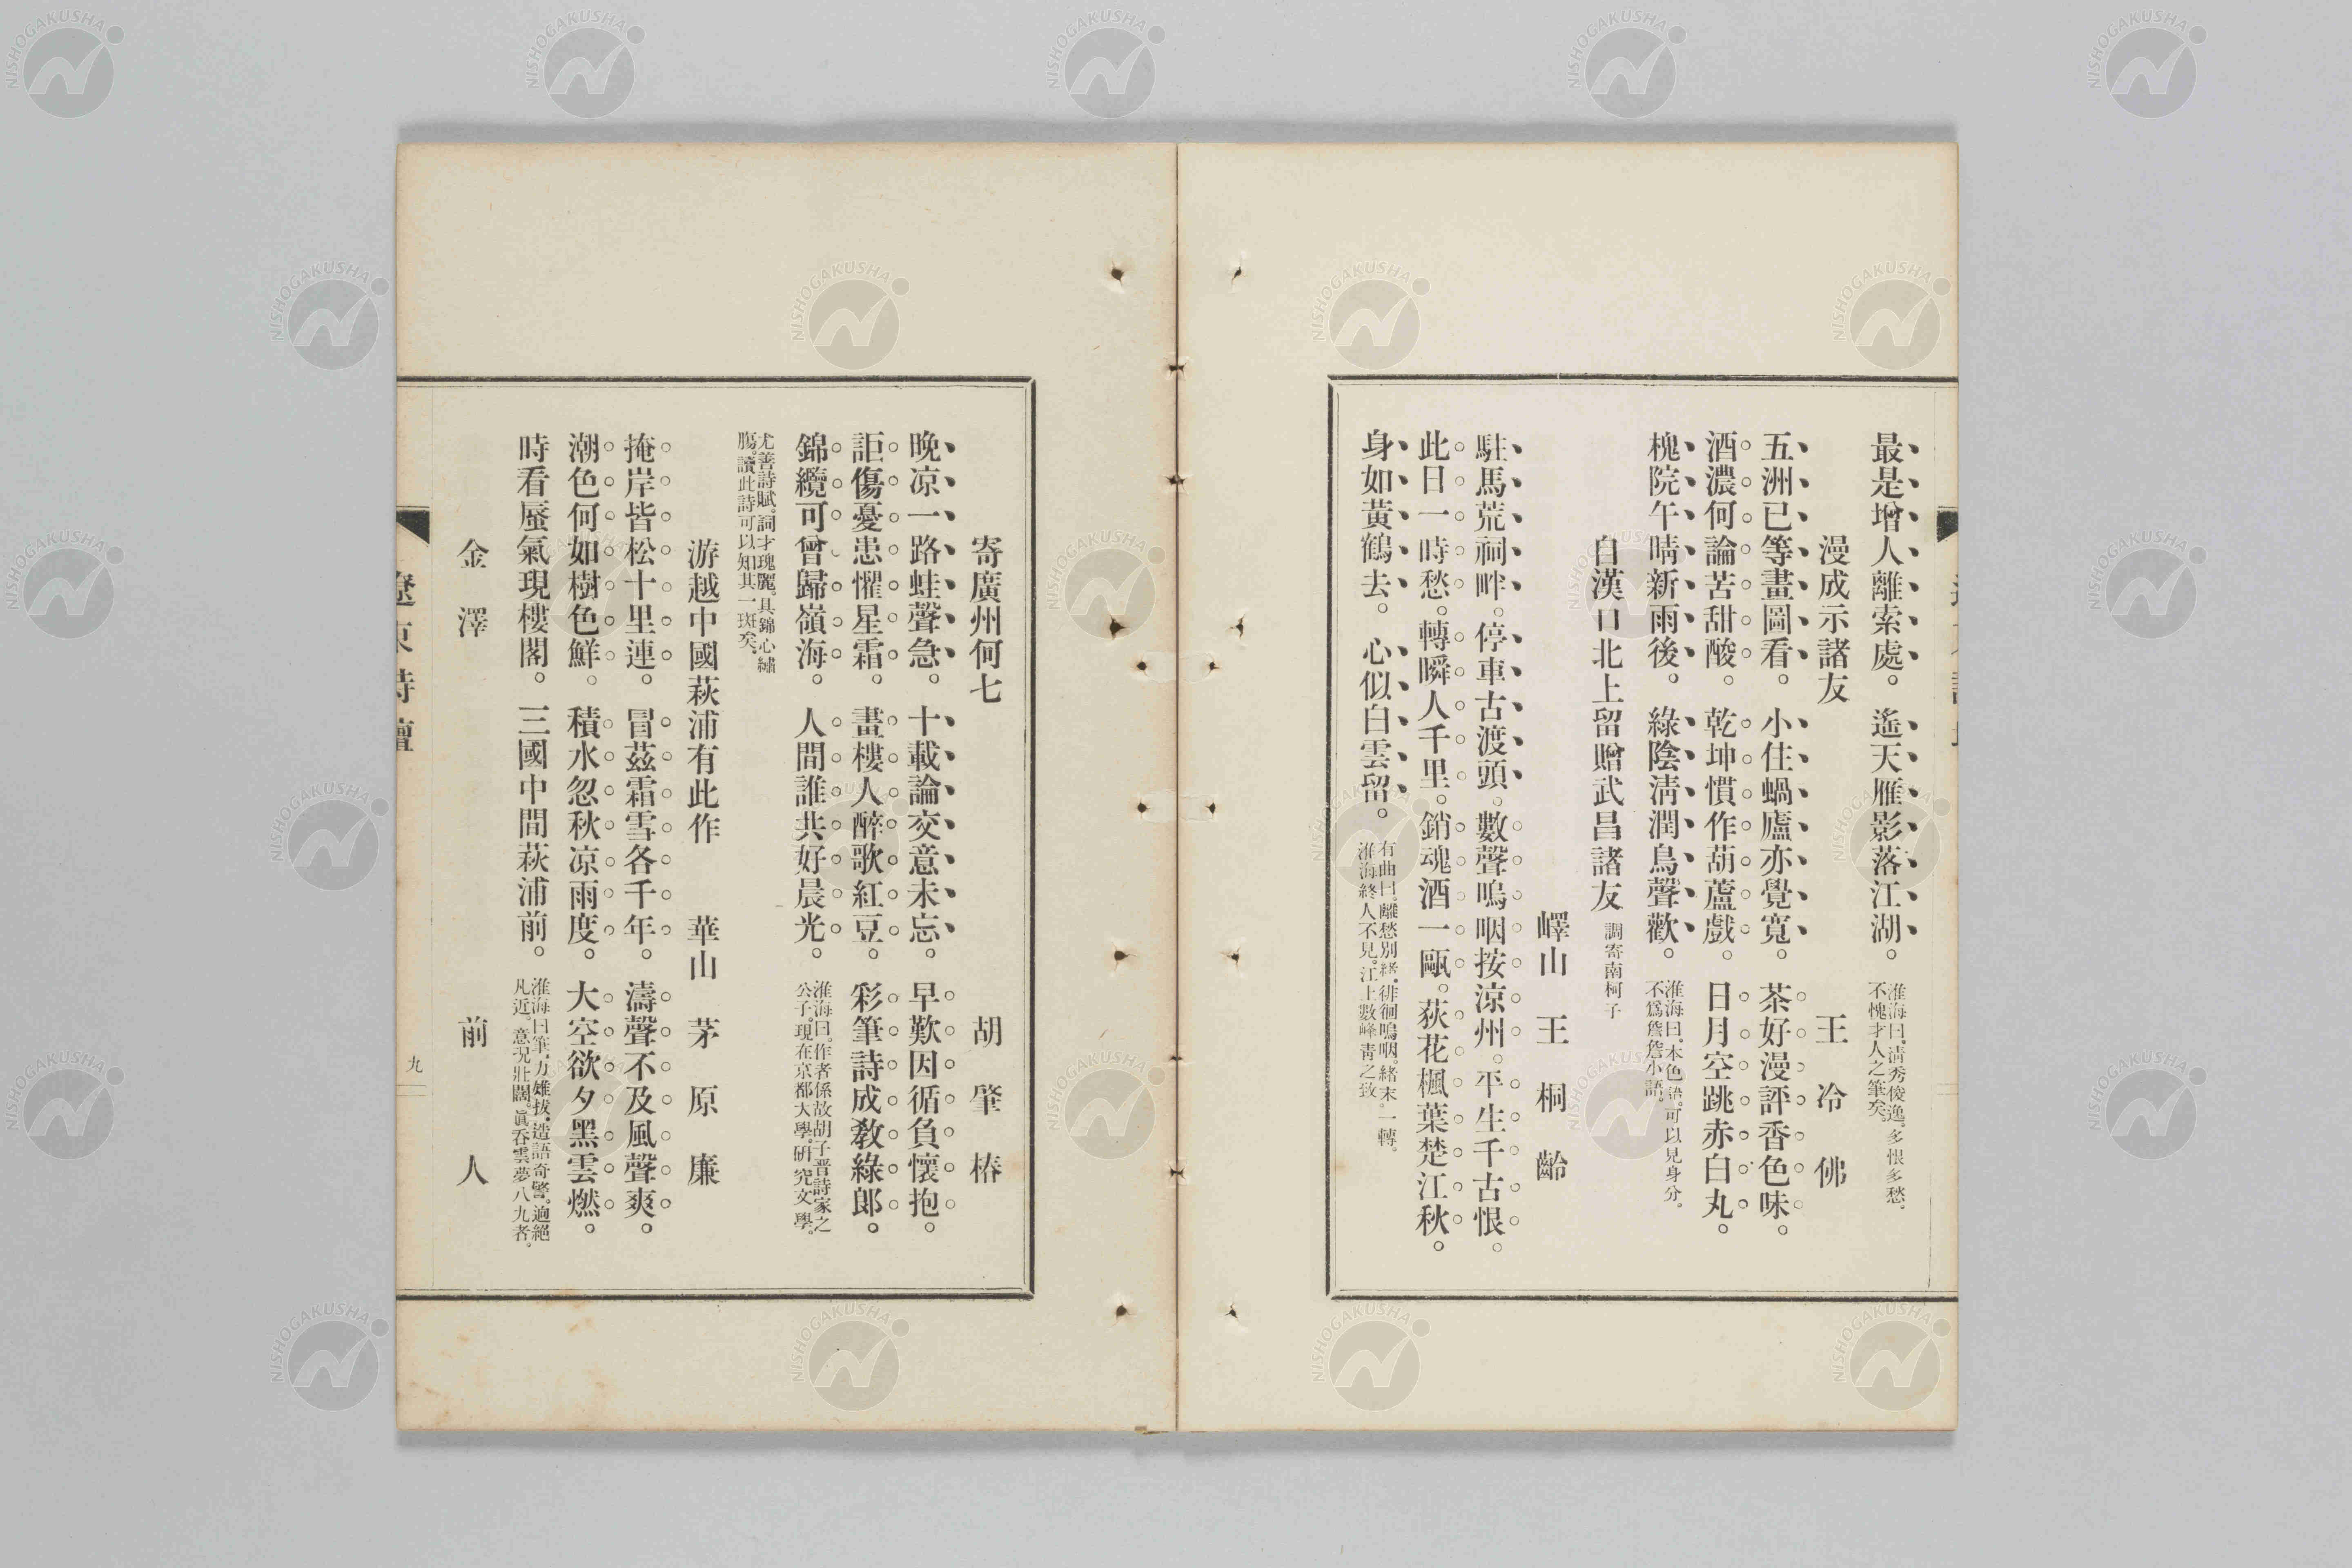 最是增人離索處。遙天雁影落江湖。淮海曰。清秀俊逸。多恨多愁。
不愧才人之筆矣。
漫成示諸友 王冷佛
五洲已等畫圖看。小住蝸廬亦覺寬。茶好漫評香色味。
酒濃何論苦甜酸。乾坤慣作葫蘆戲。日月空跳赤白丸。
槐院午晴新雨後。綠陰清潤鳥聲歡。淮海曰。本色語。可以見身分。
不爲詹詹小語。
自漢口北上留贈武昌諸友 調寄南柯子
嶧山 王桐齡
駐馬荒祠畔。停車古渡頭。數聲嗚咽按涼州。平生千古恨。
此日一時愁。轉瞬人千里。銷魂酒一甌。荻花楓葉楚江秋。
身如黃鶴去。心似白雲留。有曲曰。離愁別緒。徘徊嗚咽。緒末。一轉。
淮海終人不見。江上數峰靑之致
寄廣州何七 胡肇椿
晚涼一路蛙聲急。十載論交意未忘。早歎因循負懷抱。
詎傷憂患懼星霜。畫樓人醉歌紅豆。彩筆詩成敎綠郞。
錦纜可曾歸嶺海。人間誰共好晨光。淮海曰。作者係故胡子晋詩家之
公子。現在京都大學。研究文學。
尤善詩賦。詞才瑰麗。具錦心繡
腸。讀此詩可以知其一斑矣。
游越中國萩浦有此作 華山 茅原廉
掩岸皆松十里連。冒茲霜雪各千年。濤聲不及風聲爽。
潮色何如樹色鮮。積水忽秋涼雨度。大空欲夕黑雲燃。
時看蜃氣現樓閣。三國中間萩浦前。淮海曰筆力雄拔。造語奇警。逈絕
凡近。意况壯闊。眞吞雲夢八九者。
金澤 前人
遼東詩壇
九
NISHOGAKUSHA